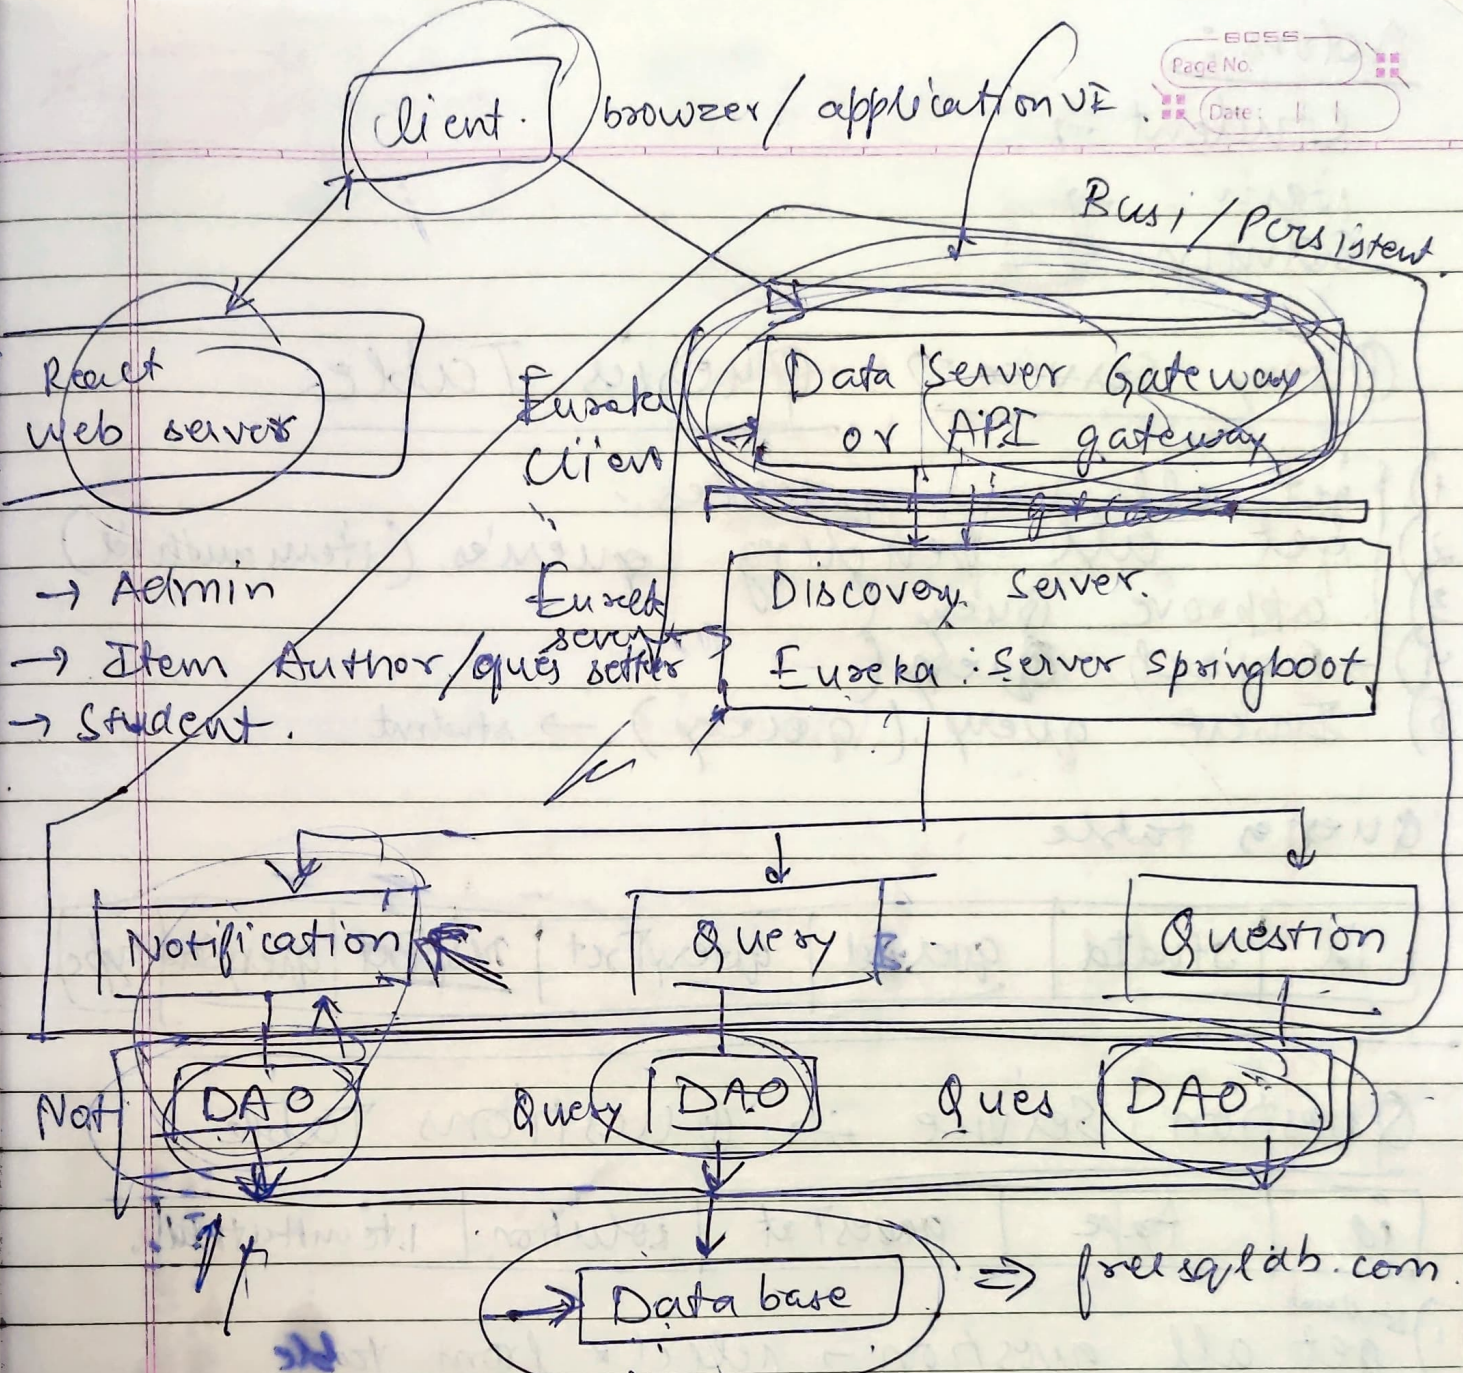 BOSS
Page No.
Date:
Client.
browzer/ application UI.
Busi/Persistent.
React
web server
Eureka
Client
Data Server Gateway
or API gateway
→ Admin
→ Item Author/ques setter
→ Student.
Eurek
server
Discovery Server.
Eureka : Server springboot
Notification
Query
Question
Not
DAO
Query
DAO
Ques
DAO
Database
⇒ freesqldb.com.